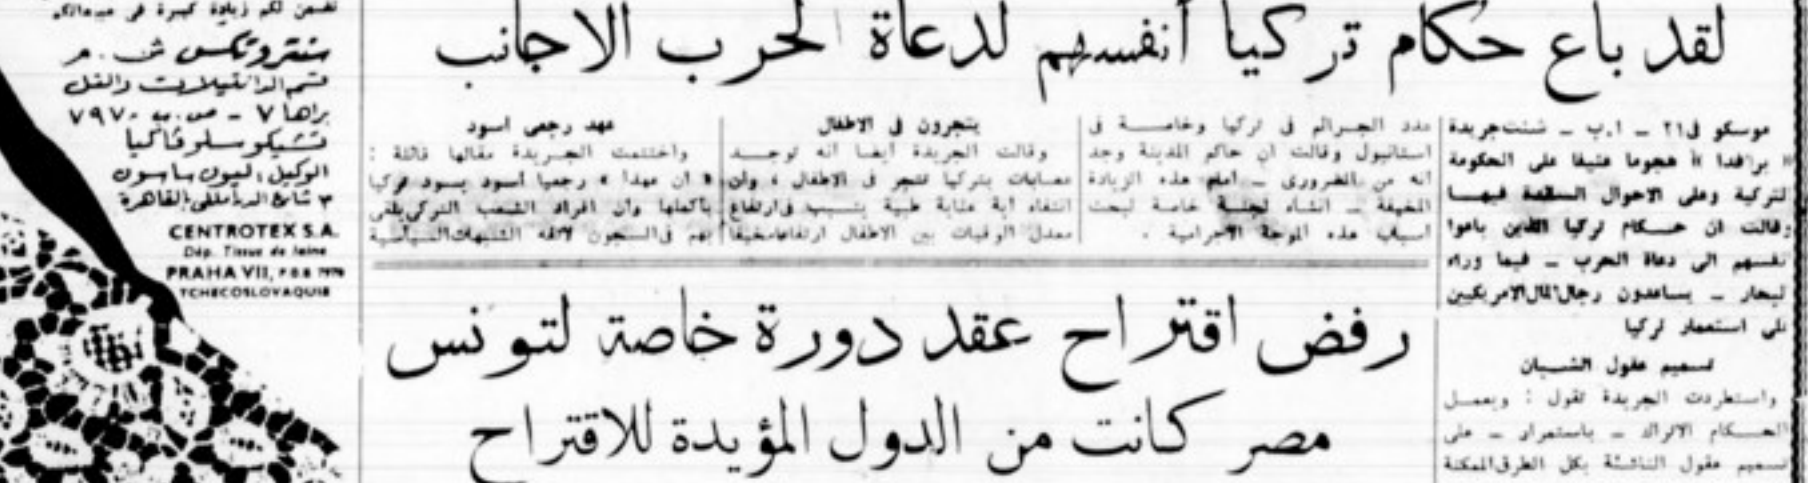 لقد باع حكام تركيا أنفسهم لدعاة الحرب الاجانب
موسكو في ٢١ ــ ا.ب ــ شنت جريدة
« برافدا » هجوما عنيفا على الحكومة
التركية وعلى الاحوال السائدة فيهــا
وقالت ان حــكام تركيا الذين باعوا
نفسهم الى دعاة الحرب ــ فيما وراء
البحار ــ يساعدون رجال المال الامريكيين
على استعمار تركيا
تسميم عقول الشبان
واستطردت الجريدة تقول : ويعمــل
الحــكام الاتراك ــ باستمرار ــ على
تسميم عقول الناشئة بكل الطرق الممكنة
عدد الجــرائم فى تركيا وخاصــة فى
استانبول وقالت ان حاكم المدينة وجد
انه من الضرورى ــ امام هذه الزيادة
المخيفة ــ انشاء لجنــة خاصة لبحث
اسباب هذه الموجة الاجرامية .
يتجرون فى الاطفال
وقالت الجريدة ايضا انه توجــد
عصابات بتركيا تتجر فى الاطفال ، وان
انتفاء اية عناية طبية يتسبب فى ارتفاع
معدل الوفيات بين الاطفال ارتفاعا مخيفا
عهد رجعى اسود
واختتمت الجــريدة مقالها قائلة :
« ان عهدا » رجعيا اسود يسود تركيا
بأكملها وان افراد الشعب التركى يلقى
بهم فى السجون لاتفه الشبهات السياسية
رفض اقتراح عقد دورة خاصة لتونس
مصر كانت من الدول المؤيدة للاقتراح
تضمن لكم زيادة كبيرة فى مبيعاتكم
سنتروتكس ش . م
قسم الدانتيلات والتل
براها ٧ ــ ص.ب ٧٩٧٠
تشيكوسلوفاكيا
الوكيل : ليون ساسون
٣ شارع القاهرة
CENTROTEX S.A.
Dép. Tissus de laine
PRAHA VII, P.O.B 7970
TCHECOSLOVAQUIE